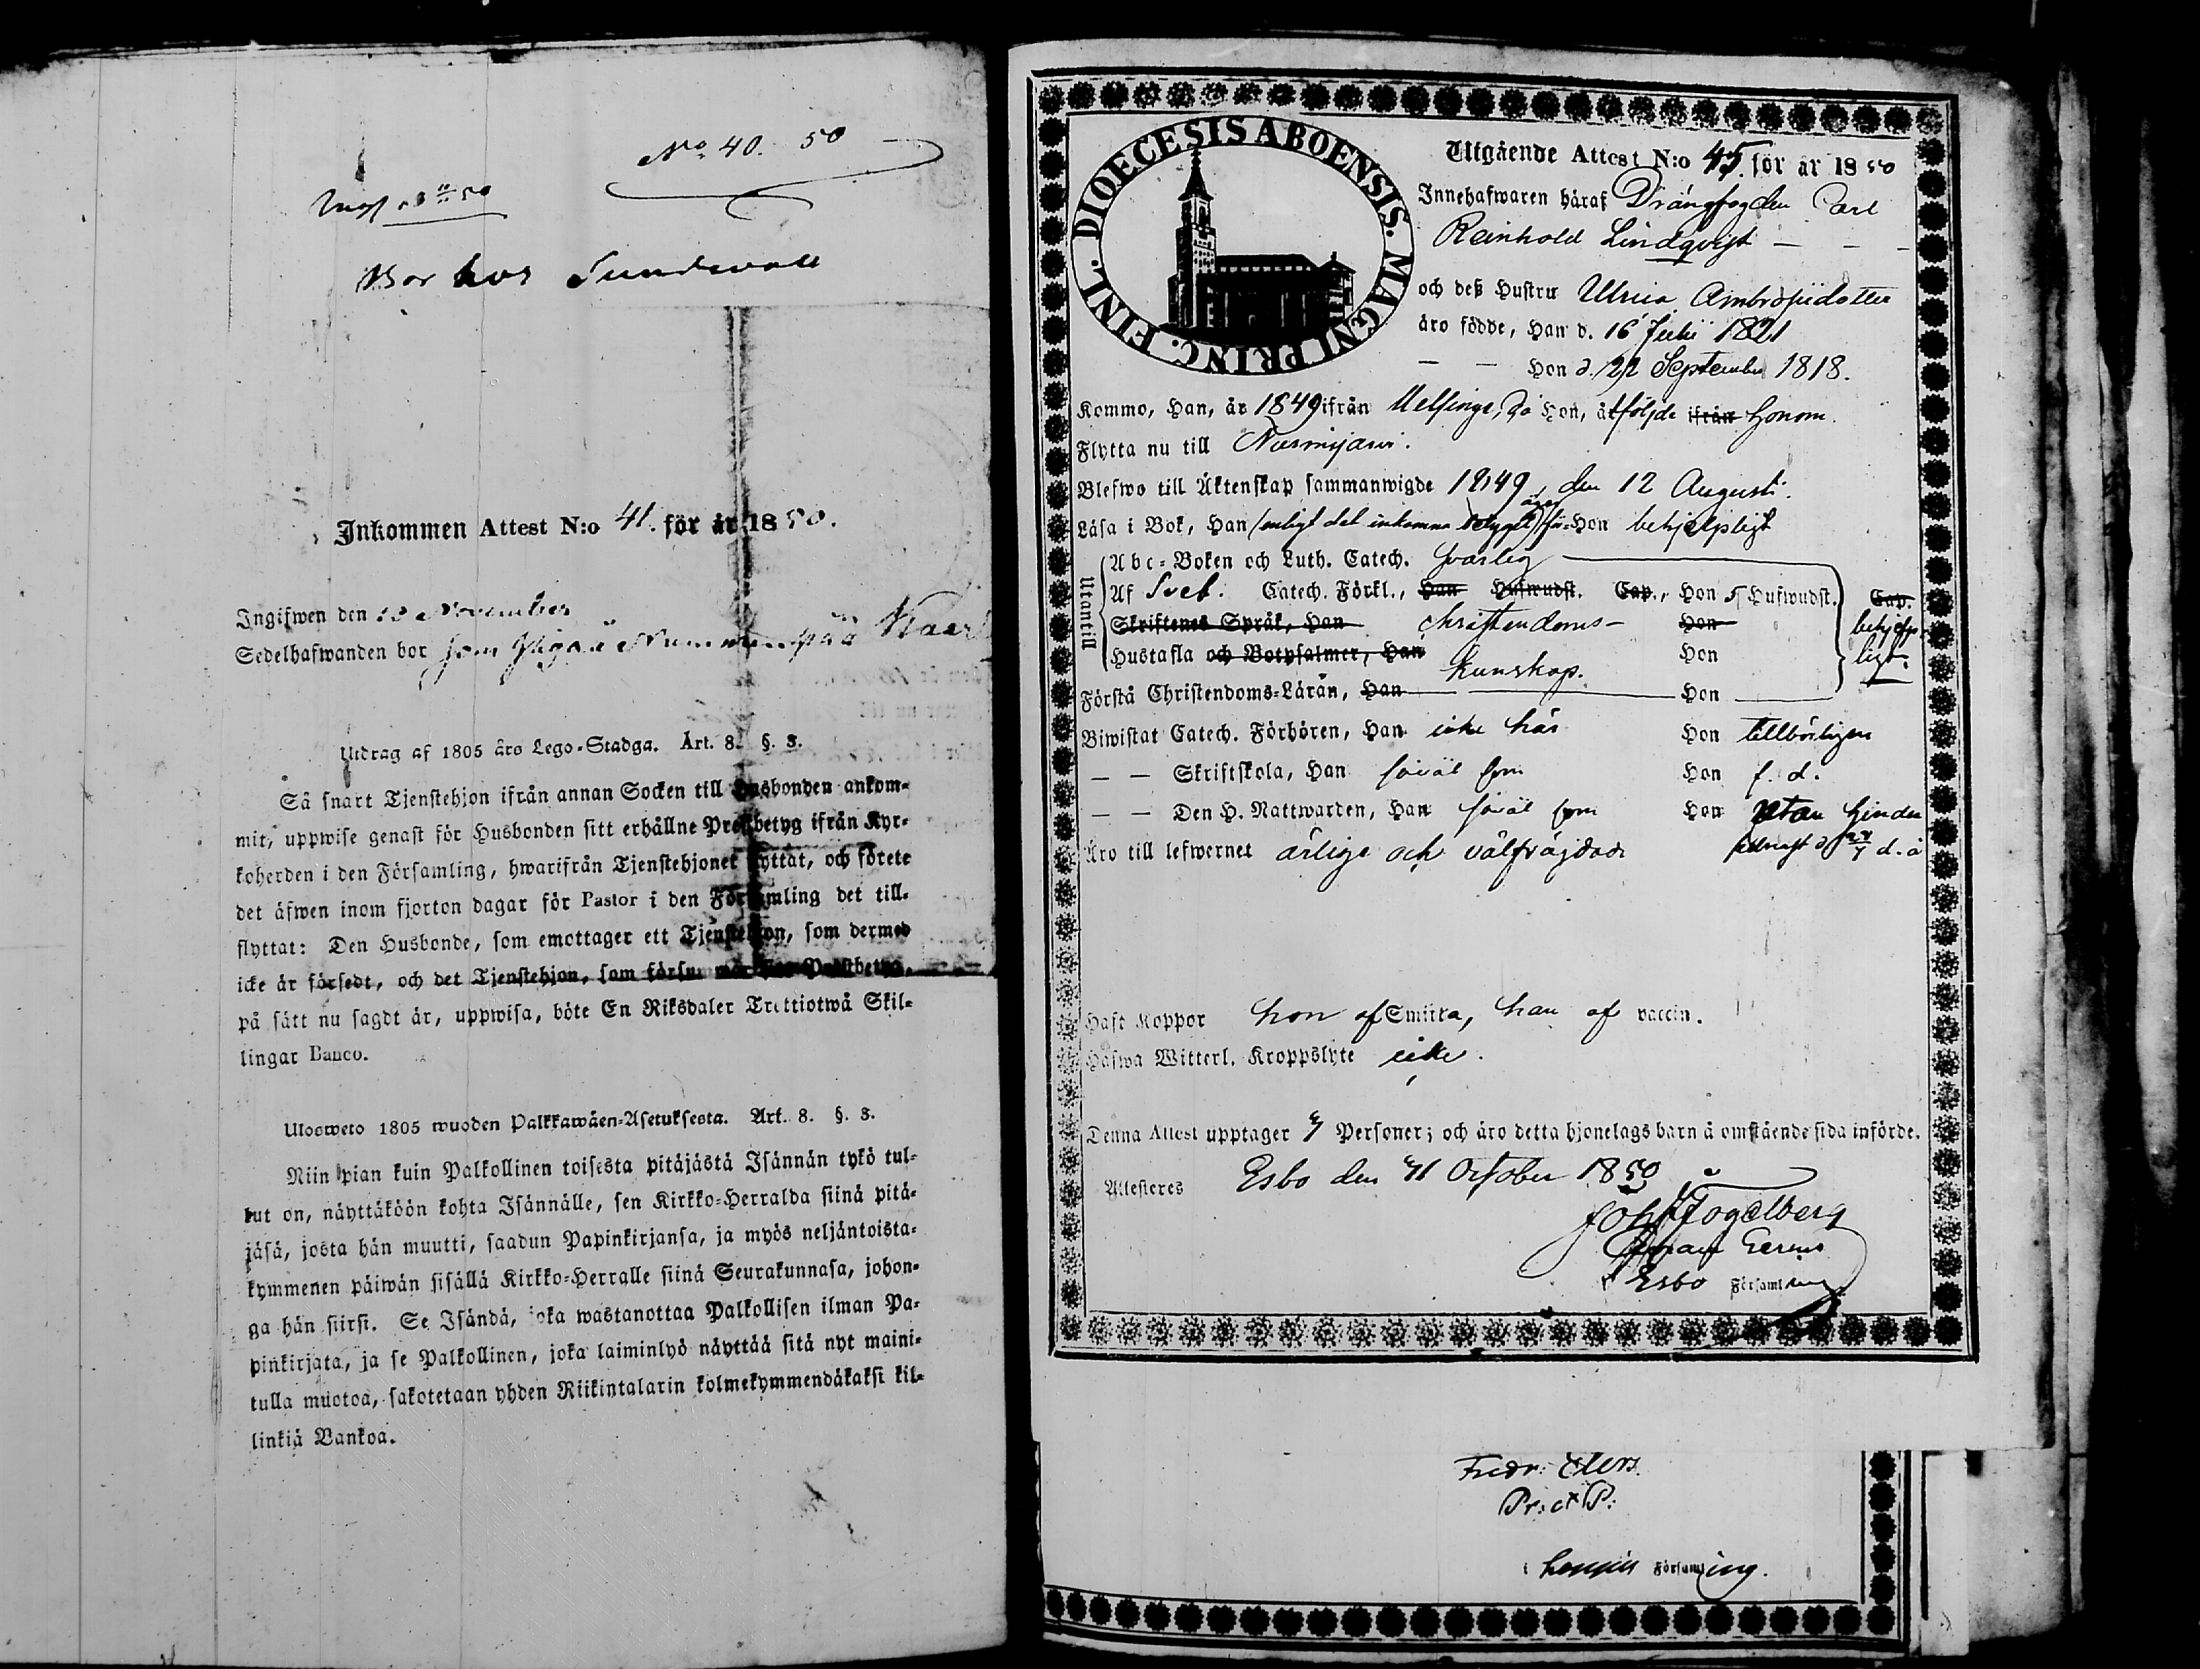 No 40. 50
Bor hos Sundwall
Inkommen Attest N:o 41. för år 1850.
Ingifwen den 13 November
Sedelhafwanden bor
Utdrag af 1805 års Lego-Stadga. Art. 8. §. 3.
Så snart Tjenstehjon ifrån annan Socken till Husbonden ankom-
mit, uppwise genast för Husbonden sitt erhållne Prestbetyg ifrån Kyr-
koherden i den Församling, hwarifrån Tjenstehjonet flyttat, och förete
det äfwen inom fjorton dagar för Pastor i den Församling det till-
flyttat: Den Husbonde, som emottager ett Tjenstehjon, som dermed
icke är försedt, och det Tjenstehjon, som försummar Prestbetyg,
på sätt nu sagdt är, uppwisa, böte En Riksdaler Trettiotwå Skil-
lingar Banco.
Ulosweto 1805 wuoden Palkkawäen-Asetuksesta. Art. 8. §. 3.
Niin pian kuin Palkollinen toisesta pitäjästä Isännän tykö tul-
lut on, näyttäköön kohta Isännälle, sen Kirkko-Herralda siinä pitä-
jäsä, josta hän muutti, saadun Papinkirjansa, ja myös neljäntoista-
kymmenen päiwän sisällä Kirkko-Herralle siinä Seurakunnasa, johon-
ga hän siirsi. Se Isändä, joka wastanottaa Palkollisen ilman Pa-
pinkirjata, ja se Palkollinen, joka laiminlyö näyttää sitä nyt maini-
tulla muotoa, sakotetaan yhden Riikintalarin kolmekymmendäkaksi kil-
linkiä Bankoa.
DIOECESIS ABOENSIS. MAGNI PRINC. FINL.
Utgående Attest N:o 45. för år 1850
Innehafwaren häraf Drängfogden Carl
Reinhold Lindqvist — — —
och deß Hustru Ulrica Ambrosiidotter
äro födde, Han d. 16 Julii 1821
— — Hon d. 22 September 1818.
Kommo, Han, år 1849 ifrån Helsinge, då Hon, åtföljde ifrån honom.
Flytta nu till Nurmijärvi.
Blefwo till Äktenskap sammanwigde 1849, den 12 Augusti.
Läsa i Bok, Han (enligt det inkomna betyget) Hon behjelpligt
Utantill
Abc-Boken och Luth. Catech. svarlig
Af Sveb. Catech. Förkl., Han Hufwudst. Cap., Hon 5 Hufwudst. Cap.
Skriftenes Språk, Han christendoms- Hon behjelp-
Hustafla och Botpsalmer, Han Hon ligt.
kunskap.
Förstå Christendoms-Läran, Han Hon
Biwistat Catech. Förhören, Han icke här Hon tillbörligen
— — Skriftskola, Han såväl som Hon f. d.
— — Den H. Nattwarden, Han såväl som Hon utan hinder
Äro till lefwernet ärlige och välfrägdade
Haft Koppor hon af Smitta, han af vaccin.
Hafwa Witterl. Kroppslyte icke.
Denna Attest upptager Personer; och äro detta hjonelags barn å omstående sida införde.
Attesteres Esbo den 11 October 1850
Joh Fogelberg
i Esbo Församling
Fredr: Elers.
i Församling.